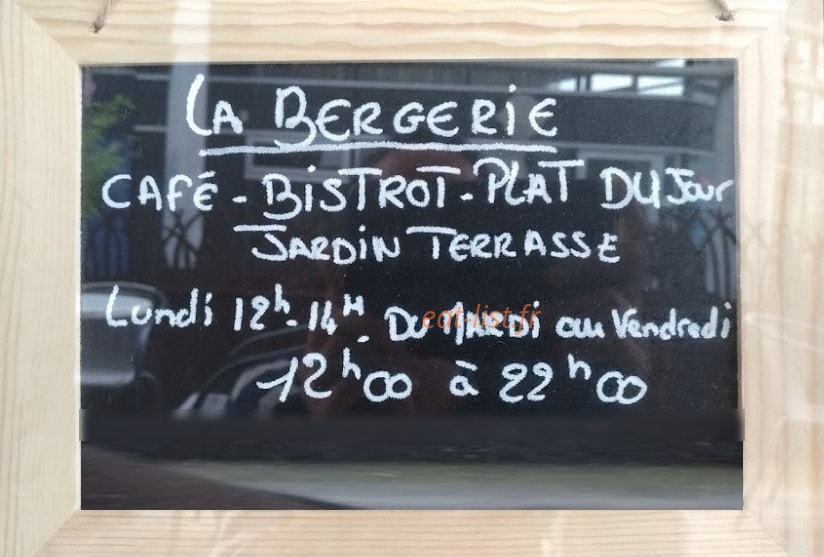 LA BERGERIE
CAFÉ - BISTROT - PLAT DU JOUR
JARDIN TERRASSE
Lundi 12h - 14H - DU MARDI au Vendredi
eat-list.fr
12h00 à 22h00